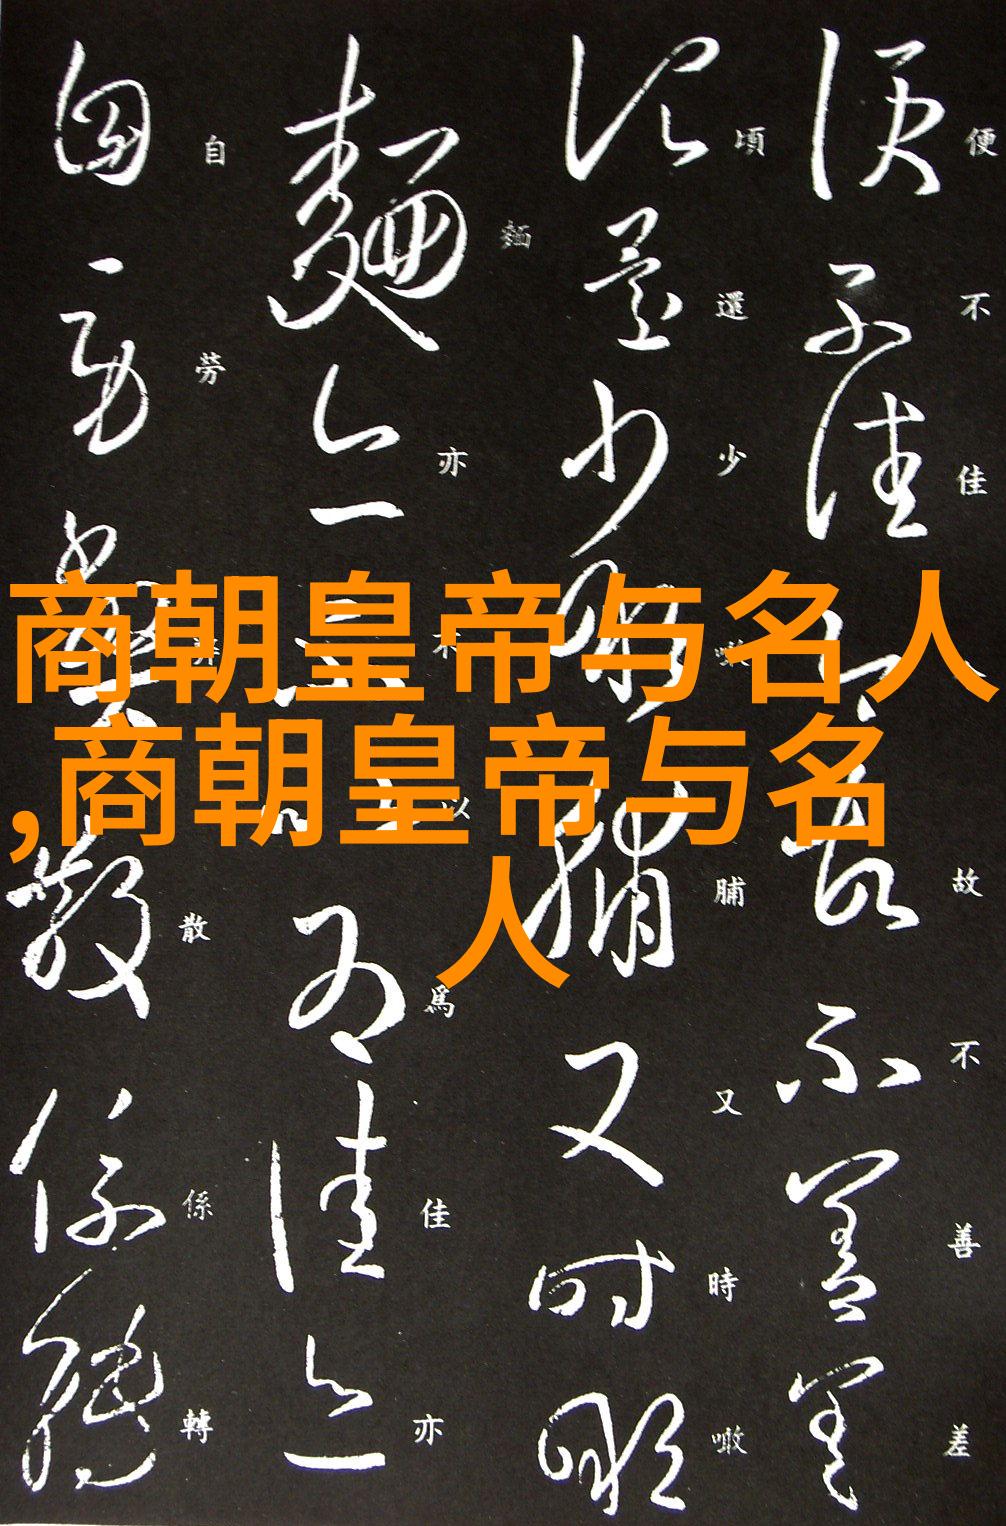 商朝皇帝与名人
,商朝皇帝与名
人
便不佳故不善差
頃還少噉脯又時噉
麵亦不以為佳亦
自勞散係轉